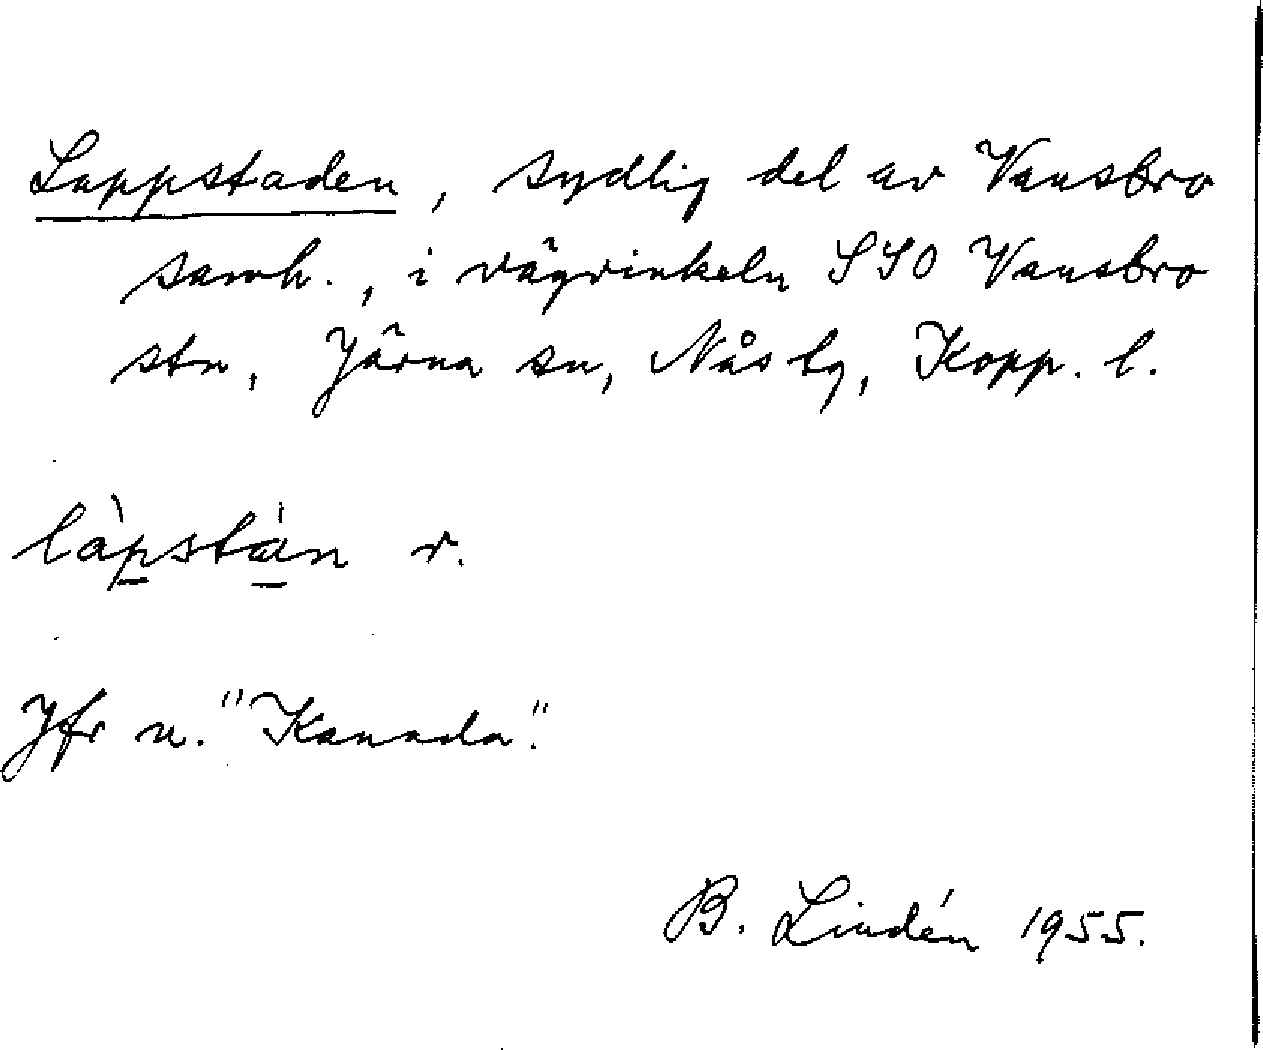 Lappstaden, sydlig del av Vansbro
samh., i vägvinkeln SSO Vansbro
stn, Järna sn, Nås tg, Kopp. l.
làpstàn r.
Jfr n. "Kanada".
B. Lindén 1955.